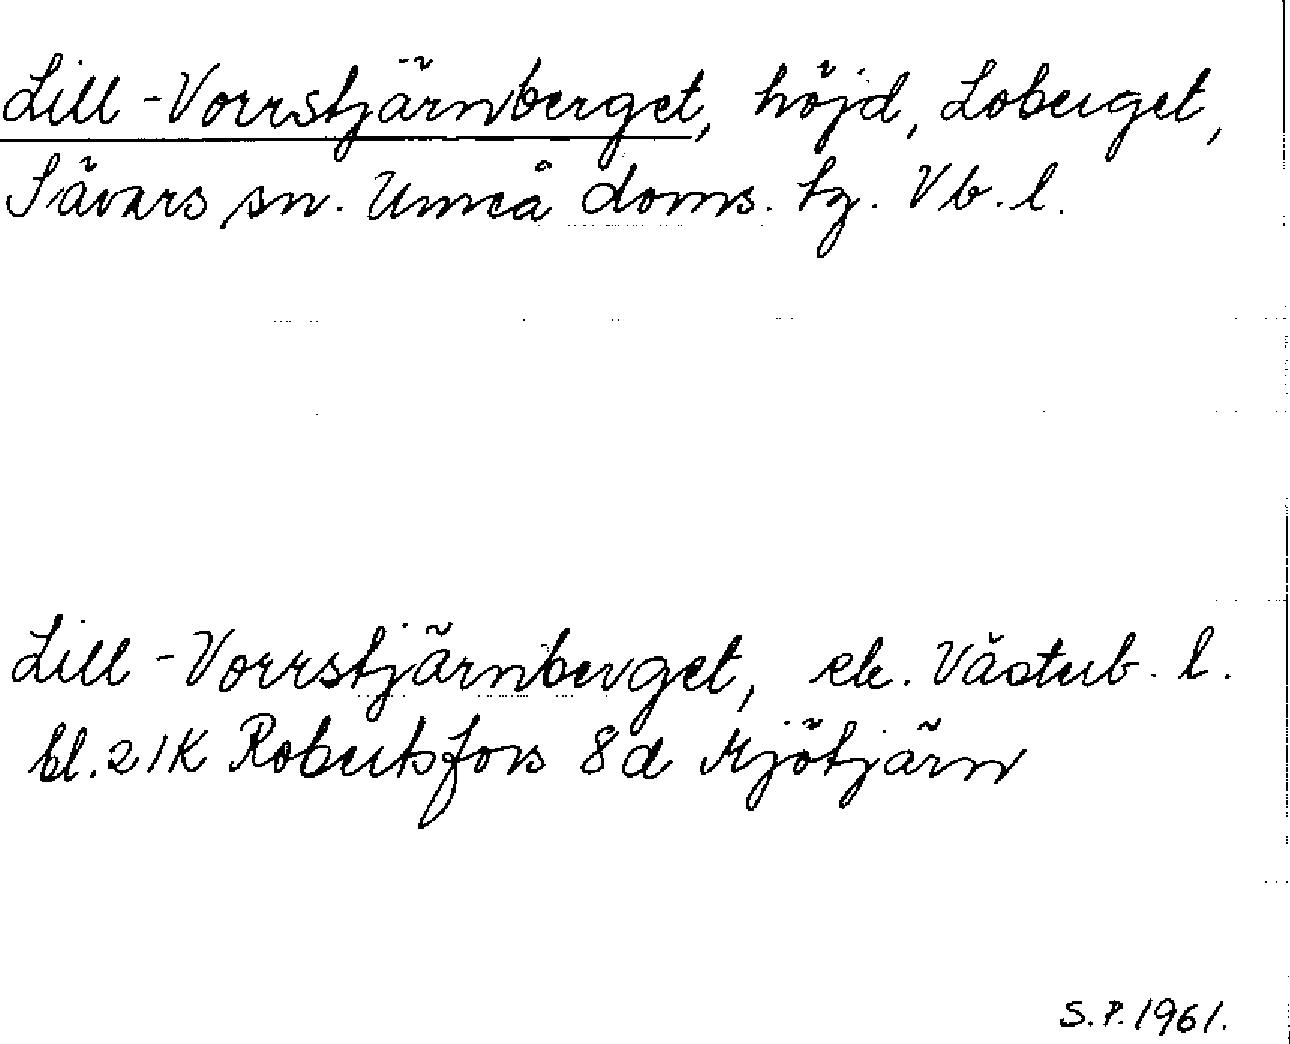 Lill-Vorrstjärnberget, höjd, Loberget,
Sävars sn. Umeå doms. tg. Vb. l.
Lill-Vorrstjärnberget, ek. Västerb. l.
bl. 21K Robertsfors 8d Mjötjärn
S.P. 1961.